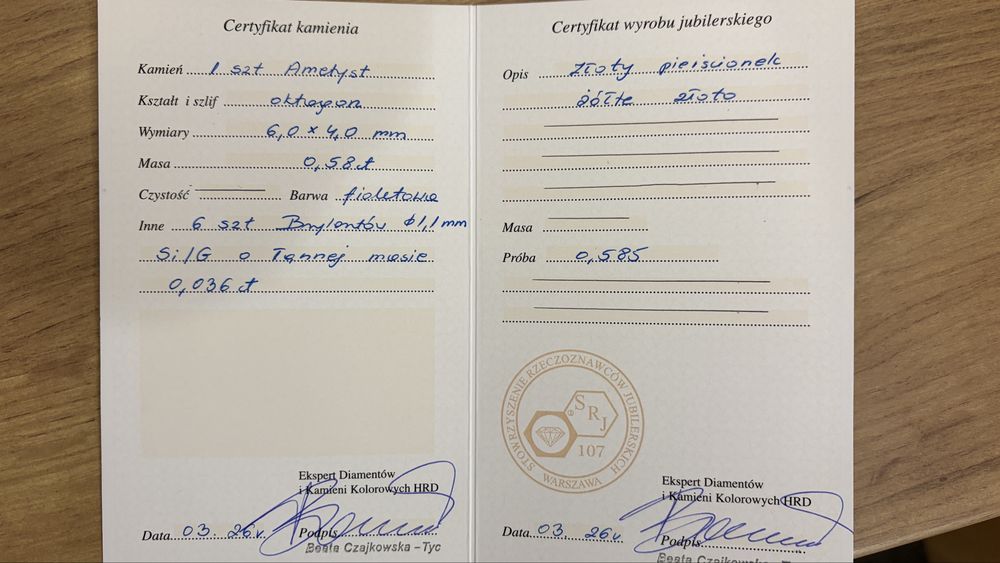 Certyfikat kamienia
Kamień 1 szt Ametyst
Kształt i szlif oktagon
Wymiary 6,0 x 4,0 mm
Masa 0,58ct
Czystość Barwa fioletowa
Inne 6 szt Brylantów ø1,1mm
Si/G o łącznej masie
0,036 ct
Ekspert Diamentów
i Kamieni Kolorowych HRD
Data 03. 26r. Podpis
Beata Czajkowska - Tyc
Certyfikat wyrobu jubilerskiego
Opis złoty pierścionek
żółte złoto
Masa
Próba 0,585
STOWARZYSZENIE RZECZOZNAWCÓW JUBILERSKICH
SRJ
107
WARSZAWA
Ekspert Diamentów
i Kamieni Kolorowych HRD
Data 03. 26r. Podpis
Beata Czajkowska - Tyc